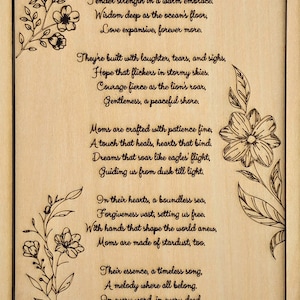 Tender strength in a warm embrace.
Wisdom deep as the ocean's floor,
Love expansive, forever more.
They're built with laughter, tears, and sighs,
Hope that flickers in stormy skies.
Courage fierce as the lion's roar,
Gentleness, a peaceful shore.
Moms are crafted with patience fine,
A touch that heals, hearts that bind.
Dreams that soar like eagles' flight,
Guiding us from dusk till light.
In their hearts, a boundless sea,
Forgiveness vast, setting us free.
With hands that shape the world anew,
Moms are made of stardust, too.
Their essence, a timeless song,
A melody where all belong.